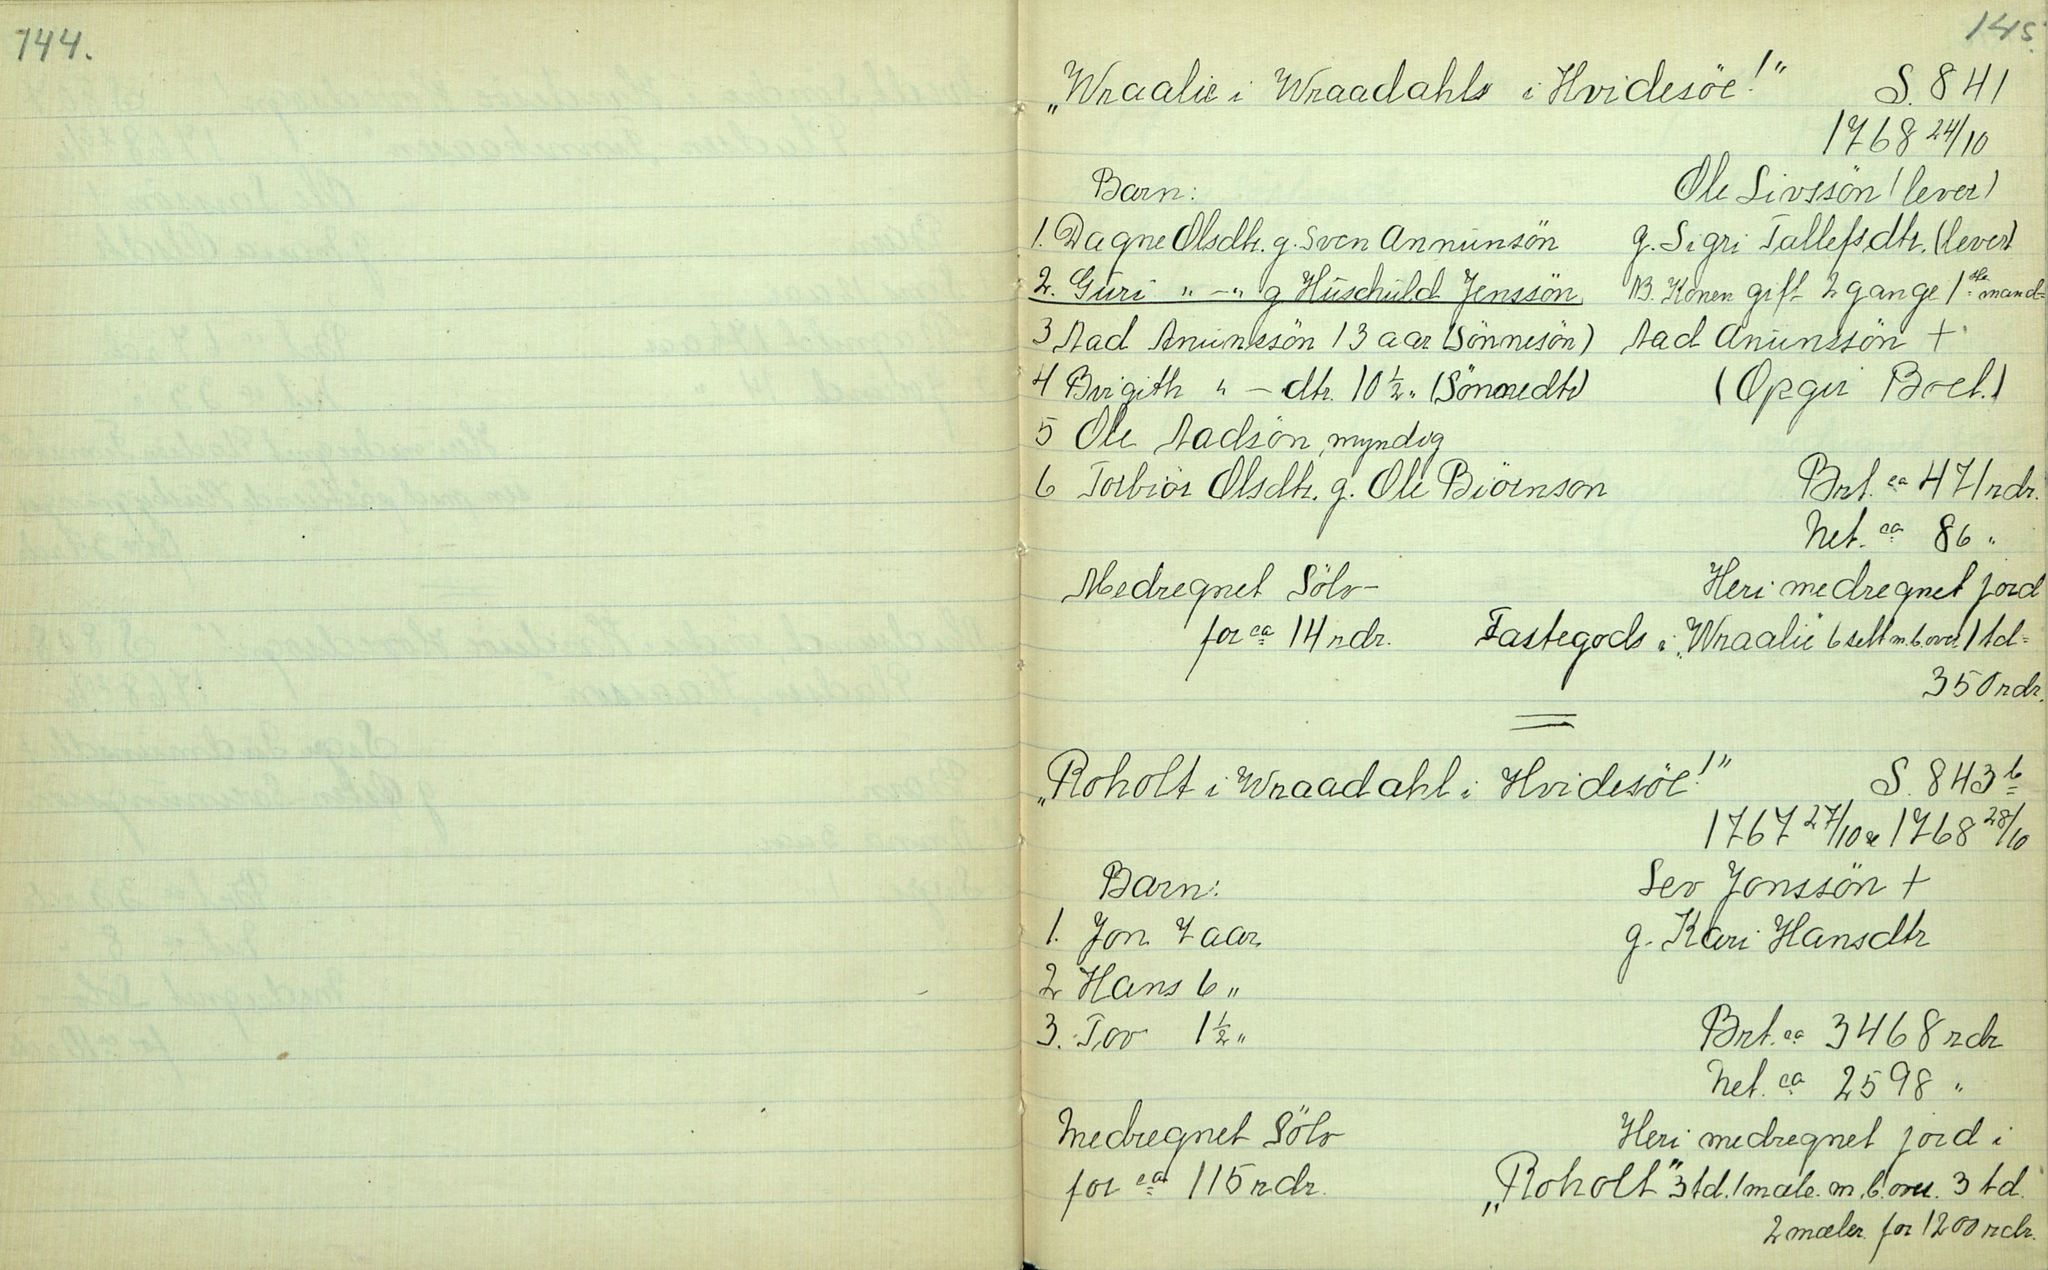 144.
145.
„Wraalie i Wraadahls i Hvidesöe!" S. 841
1768 24/10
Barn: Ole Sivssön (lever)
1. Dagne Olsdtr. g. Sven Annunsön g. Sigri Tallefsdtr. (lever)
2. Guri " -" g Huschuld Jenssön NB. Konen gift 2 gange 1ste mand=
3 Aad Anunssön 13 aar (Sönnesön) Aad Anunssön +
4 Birgith " - dtr. 10 ½ " (Sönnedtr) (Opgir Boet.)
5 Ole Aadsön, myndig
6 Torbiör Olsdtr. g. Ole Biörnson Brt. ca 471 rdr.
Net. ca 86 "
Medregnet Sölv- Heri medregnet jord
for ca 14 rdr. Fastegods i „Wraalie" 6 sett m. b. over 1 td=
350 rdr.
„Roholt i Wraadahl i Hvidesöe!" S. 843 b
1767 27/10 & 1768 28/10
Barn: Sev Jonssön +
1. Jon 7 aar g. Kari Hansdtr
2 Hans 6 "
3. Tov 1 ½ " Brt. ca 3468 rdr
Net. ca 2598 "
Medregnet Sölv Heri medregnet jord i
for ca 115 rdr. „Roholt" 3 td. 1 mæle. m. b. over. 3 td.
2 mæler for 1200 rdr.